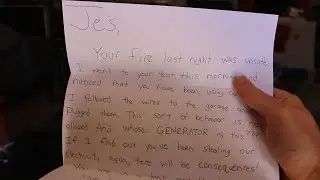 Jes,
Your fire last night was unsafe.
I went to your tent this morning and
noticed that you have been using
I followed the wires to the garage and
plugged them. This sort of behavior is not
allowed And whose GENERATOR is this???
If I find out you've been stealing our
electricity again, there will be consequences!
You are